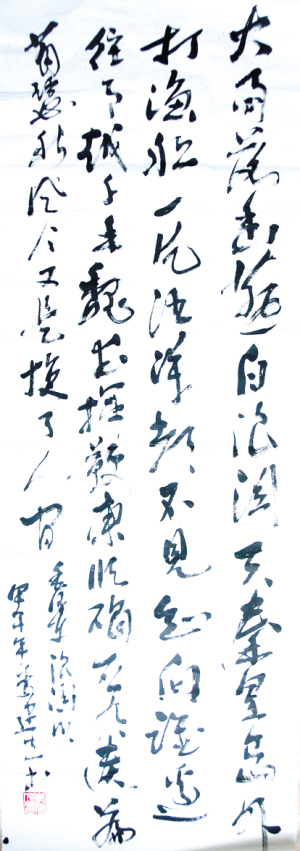 大雨落幽燕白浪滔天秦皇岛外
打渔船一片汪洋都不见知向谁边
往事越千年魏武挥鞭东临碣石有遗篇
萧瑟秋风今又是换了人间
毛泽东浪淘沙
甲午年